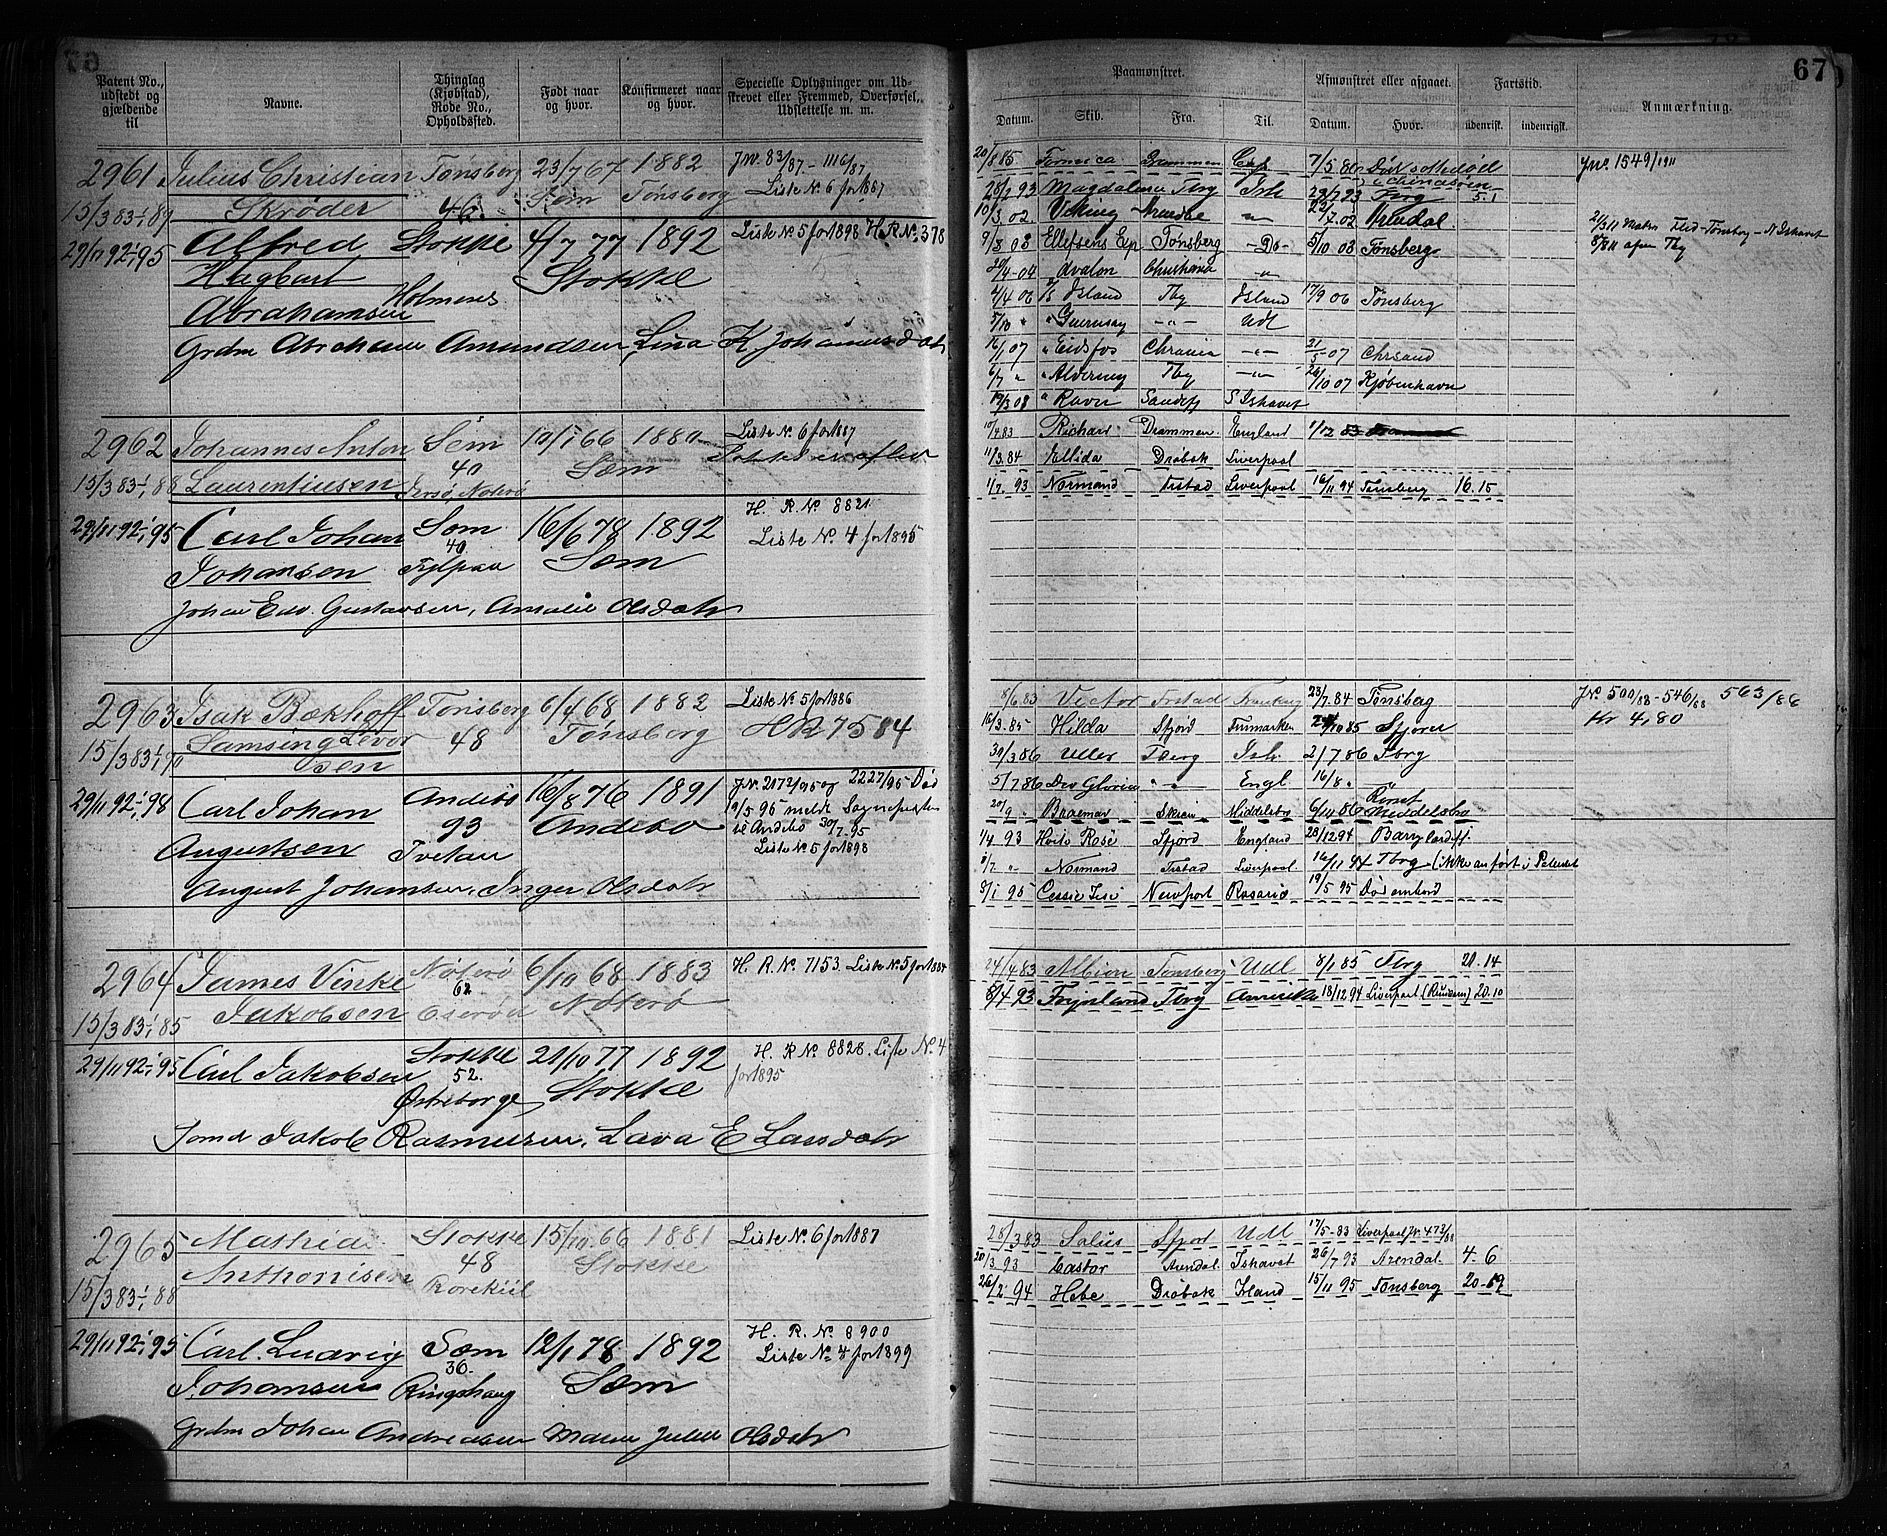 67
Patent No., udstedt og gjældende til
Navne.
Thinglag (Kjøbstad), Rode No., Opholdssted.
Født naar og hvor.
Konfirmeret naar og hvor.
Specielle Oplysninger om Udskrevet eller Fremmed, Overførsel, Udslettelse m. m.
2961 Julius Christian Tønsberg 23/7 67 1882 Jn. 83/87 - 1116/87
15/3 83-1/1 89 Skrøder 46 Sem Tønsberg Liste No. 6 for 1887
29/11 92-1/1 95 Alfred Stokke 4/7 77 1892 Liste No 5 for 1898 H. R. No. 378
Hagbart Stokke
Abrahamsen Holmenes
Grdm Abraham Amundsen, Lina K Johannesdatr
2962 Johannes Anton Sem 10/1 66 1880 Liste No. 6 for 1887
40 Sæm
15/3 83-1/1 88 Laurentiusen Nøterø
H. R. No 8821
29/11 92-1/1 95 Carl Johan Sæm 16/6 78 1892 Liste No. 4 for 1895
Johansen 40 Sæm
Johan Edv. Gustavsen, Amalie Olsdatr
2963 Isak Bækhoff Tønsberg 6/4 68 1882 Liste No 5 for 1886
15/3 83-1/1 90 Samsing Levorsen 48 Tønsberg H R 7584
29/11 92-1/1 98 Carl Johan Andebo 16/8 76 1891 Jn. 2172/95 og 2227/95 Død
93 Andebo 19/5 95 meld. Sognepresten
Augustsen Tvetan til Andebo 30/7-95
Liste No 5 for 1898
August Johansen, Inger Olsdatr
2964 James Vinke Nøterø 6/10 68 1883 H. R. No. 7153. Liste No. 5 for 1884
62
15/3 83-1/1 85 Jakobsen Nøterø
29/11 92-1/1 95 Carl Jakobsen Stokke 21/10 77 1892 H. R. No 8828. Liste No. 4
52. Stokke for 1895
Jakob Rasmussen, Lava E Larsdatr
2965 Mathias Stokke 15/10 66 1881 Liste No. 6 for 1887
15/3 83-1/1 88 Anthonisen 48 Stokke
29/11 92-1/1 95 Carl Ludvig Sæm 12/1 78 1892 H. R. No. 8900
36. Liste No 4 for 1899
Johansen Ringshaug Sæm
Grdm Johan Andreassen Maren Julie Olsdatr
67
Paamønstret.
Afmønstret eller afgaaet.
Fartstid.
Anmærkning.
Datum. Skib. Fra. Til. Datum. Hvor. udenrisk. indenrigsk.
20/8 85 Drammen Cap 7/5 86 Jno. 1549/1911
28/2 93 Magdalena Tbrg Ish 23/7 93 Tbrg 5.1
10/3 02. Viking Arendal — " — 22/7 02 Arendal
9/3 03 Ellefsens Exp Tønsberg — Do — 5/10 03 Tønsberg
20/4-04 Avalon Christiania — " —
4/4 06 Island Tbg Island 17/9 06 Tønsberg
5/10 " Guernsay — " — Udl
16/1 07 " Eidsfos Chrania — " — 21/5 07 Chrsand
6/7 " " Alvering Tbg — " — 26/10 07 Kjøbenhavn
19/3 08 " Ravn Sandefj S Ishavet
10/4.83 Richard Drammen England 1/12 83
11/3.84 Ellida Drøbak Liverpool
1/7. 93 Normand Fristad Liverpool 16/11 94 Tønsberg 16.15
8/6.83 Victor Frstad Frankrig 23/7.84 Tønsberg Jno. 500/88 - 546/88 563/88
16/3.85 Hilda Sfjord Finmarken 10 85 Sfjord Kr 4,80
30/3.86 Uller Tberg Ish. 21/7 86 Tbrg
5/7 86 Deo Gloria — " — Engl. 16/8 "
20/9 " Braemar Skien Middlesbro 6/11 86 Rømt Meddelsbro
1/4 93 Hvite Rose Sfjord England 28/12 94 Barry Cardiff
1/7 " Normand Fristad Liverpool 16/11 94 Tbrg (ikke anført i Patentet
3/1 95 Cessie Newport Rosario 19/5 95 Død ombord
24/4 83 Albion Tønsberg Udl 8/1 85 Tbrg 20.14
8/4 93 Tbrg Amerika 18/12 94 Liverpool 20.10
28/3 83 Salus Sfjor Udl 17/5-83 Liverpool Jn. 473/88
20/3 93 Castor Arendal Ishavet 26/7 93 Arendal 4-6
26/2 94 Hebe Drøbak Irland 15/11 95 Tønsberg 20-19